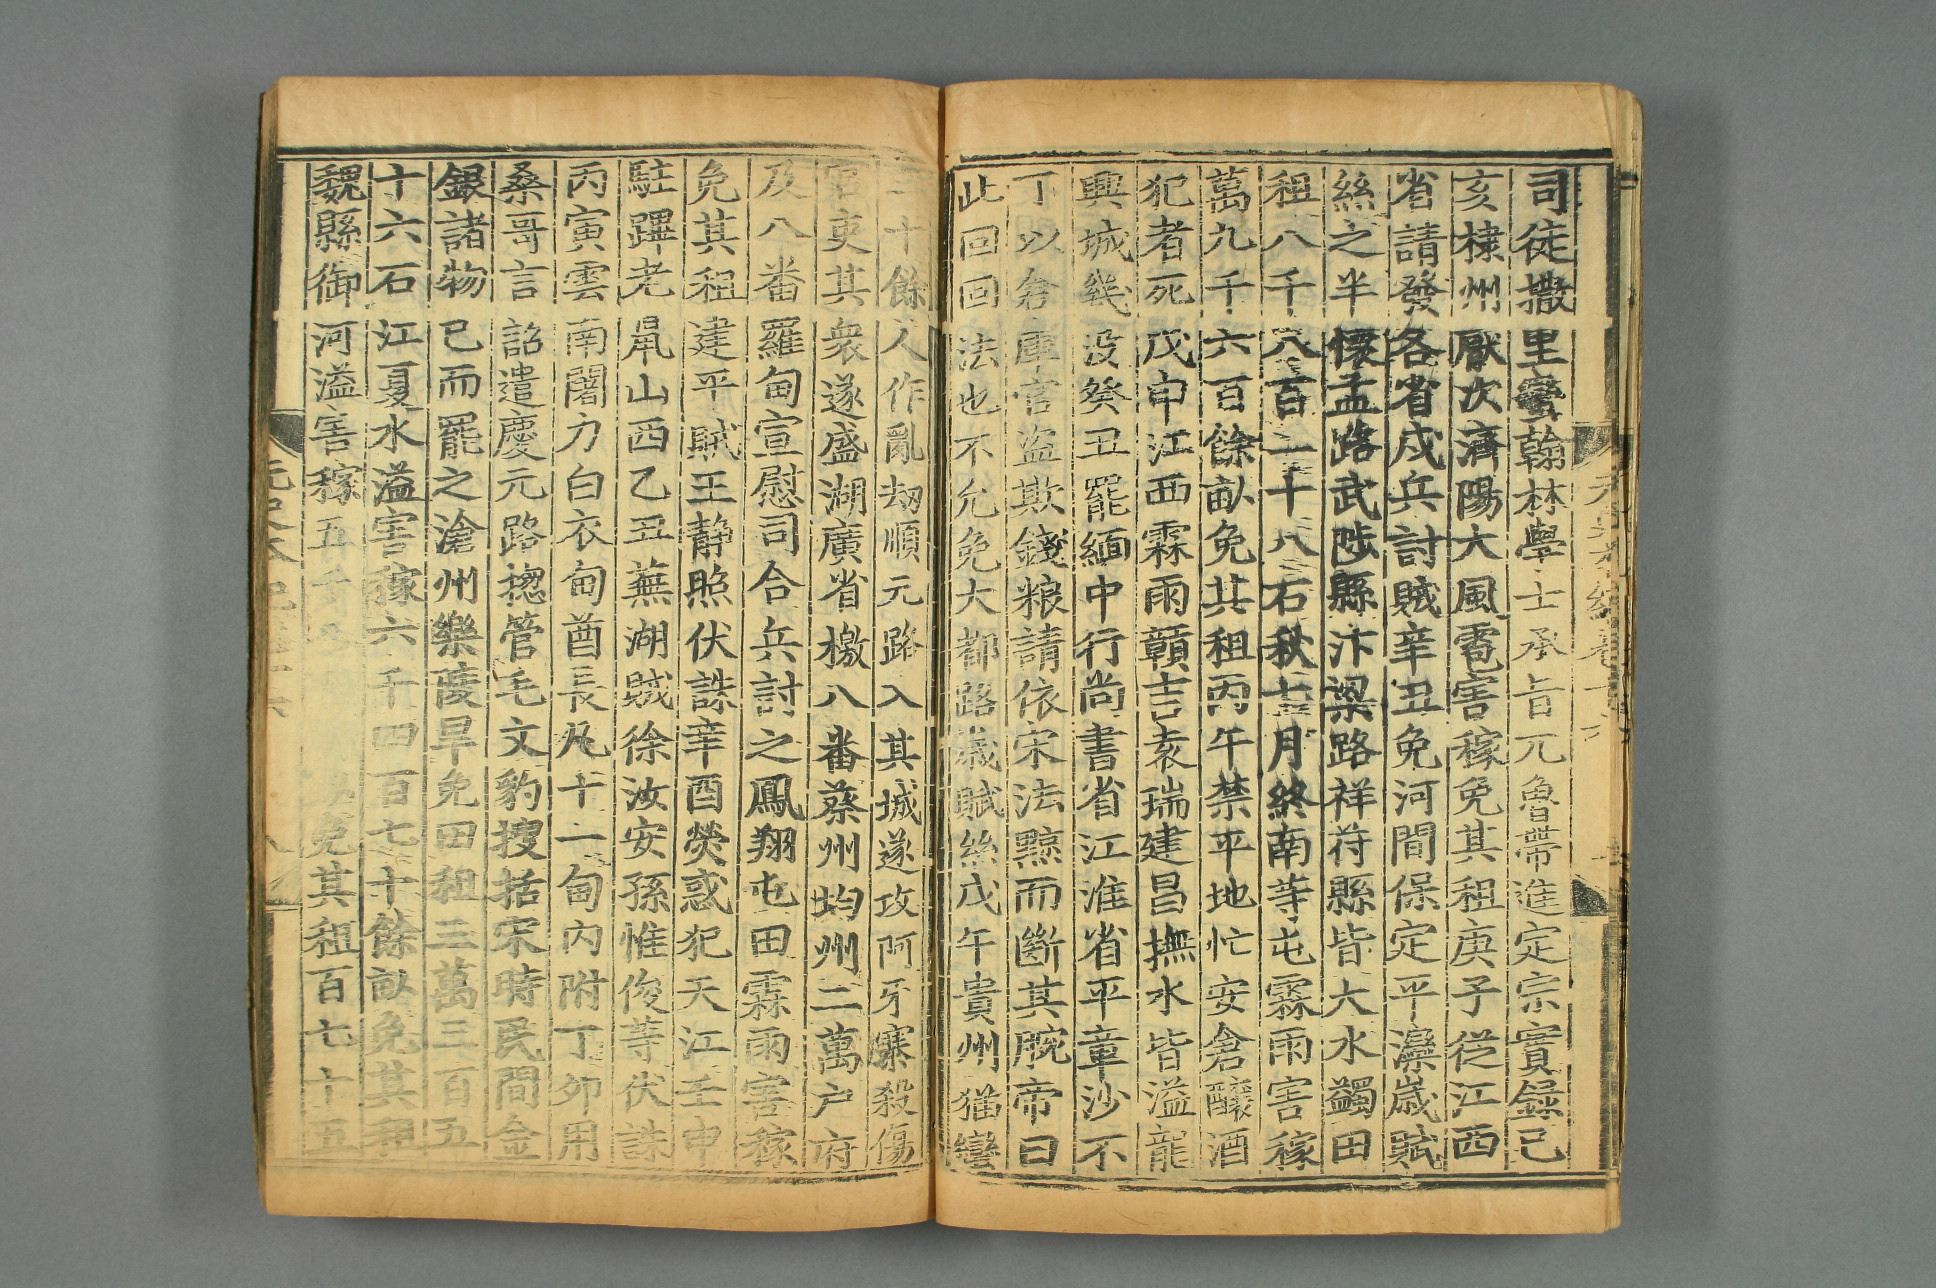 司徒撒里蠻翰林學士承旨兀魯帶進定宗實錄己
亥棣州厭次濟陽大風雹害稼免其租庚子從江西
省請發各省戍兵討賊辛丑免河間保定平灤歲賦
絲之半懷孟路武陟縣汴梁路祥符縣皆大水蠲田
租八千八百二十八石秋七月終南等屯霖雨害稼
萬九千六百餘畝免其租丙午禁平地忙安倉釀酒
犯者死戊申江西霖雨贛吉袁瑞建昌撫水皆溢龍
興城幾没癸丑罷緬中行尚書省江淮省平章沙不
丁以倉庫官盜欺錢粮請依宋法黥而斷其腕帝曰
此回回法也不允免大都路歲賦絲戊午貴州猫蠻
三十餘人作亂刼順元路入其城遂攻阿牙寨殺傷
官吏其衆遂盛湖廣省檄八番蔡州均州二萬户府
及八番羅甸宣慰司合兵討之鳳翔屯田霖雨害稼
免其租建平賊王静照伏誅辛酉熒惑犯天江壬申
駐蹕老鼠山西乙丑蕪湖賊徐汝安孫惟俊等伏誅
丙寅雲南闍力白衣甸酋長凡十一甸内附丁夘用
桑哥言詔遣慶元路揔管毛文豹搜括宋時民間金
銀諸物已而罷之滄州樂陵旱免田租三萬三百五
十六石江夏水溢害稼六千四百七十餘畝免其租
魏縣御河溢害稼五千免其租百七十五